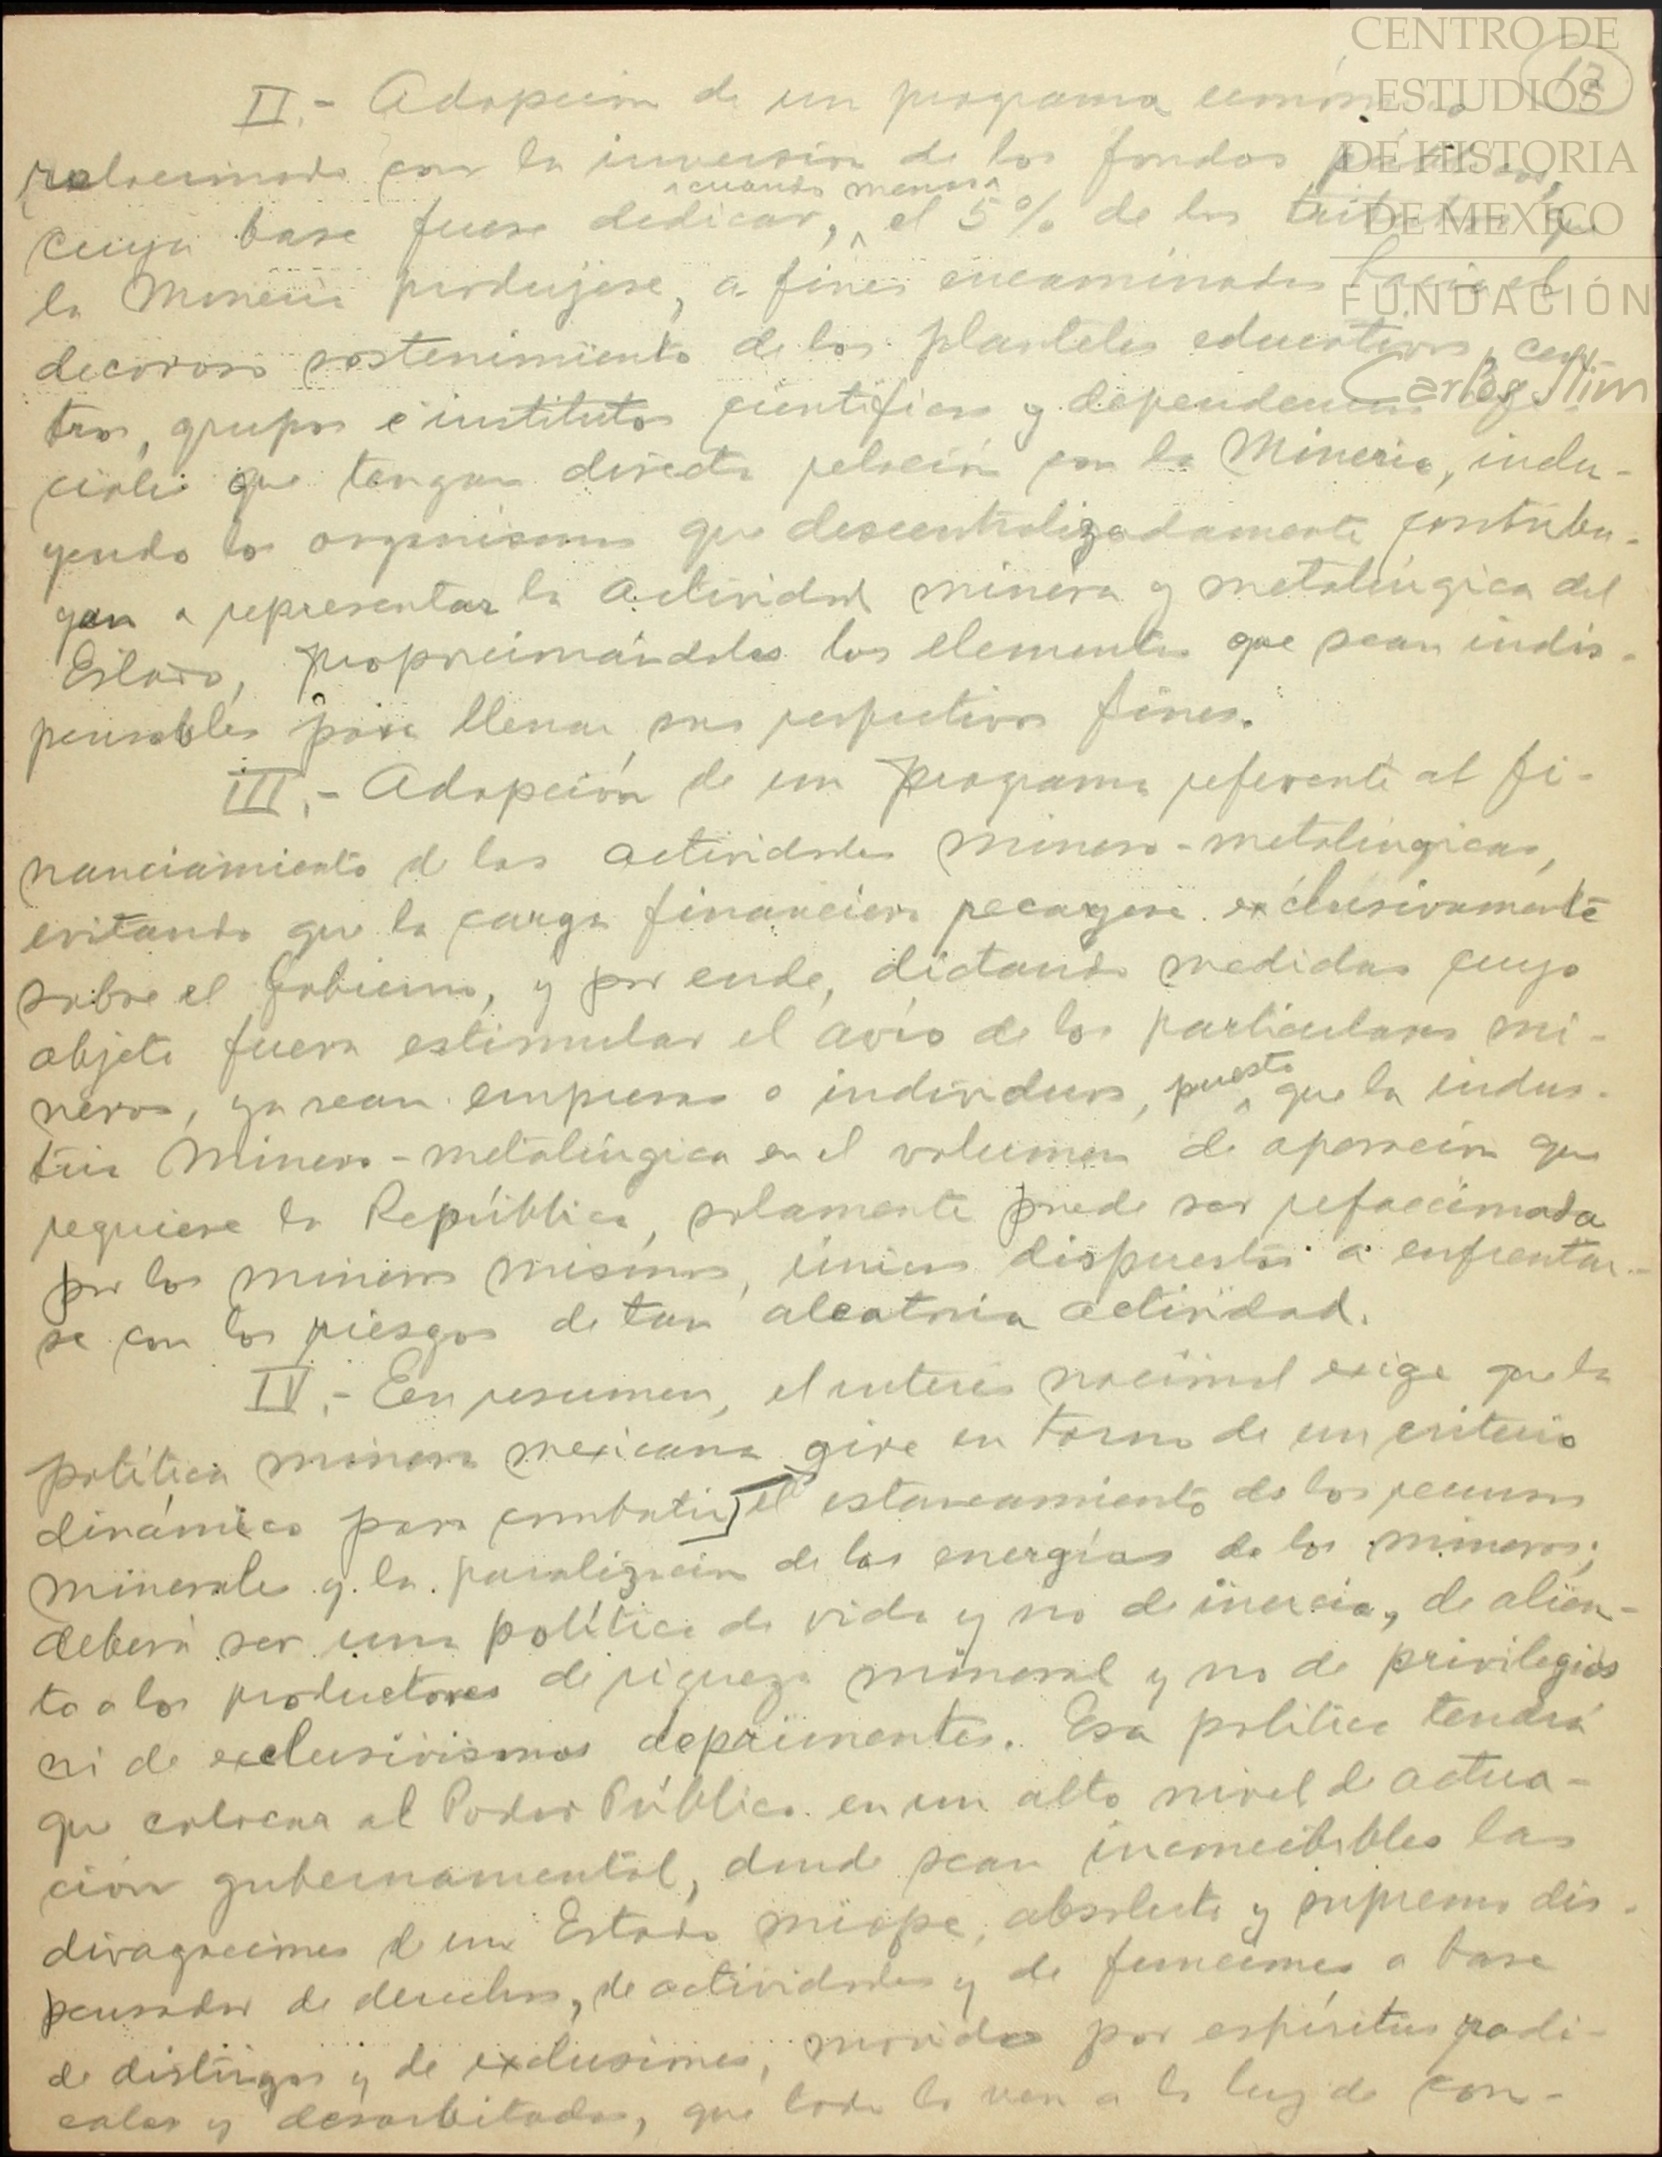 CENTRO DE
ESTUDIOS
DE HISTORIA
DE MEXICO
FUNDACIÓN
Carlos Slim
12
II.- Adopción de un programa económico
relacionado con la inversión de los fondos públicos,
cuya base fuese dedicar, cuando menos el 5% de los tributos que
la Minería produjese, a fines encaminados hacia el
decoroso sostenimiento de los planteles educativos, cen-
tros, grupos e institutos científicos y dependencias ofi-
ciales que tengan directa relación con la Minería, inclu-
yendo los organismos que descentralizadamente contribu-
yan a representar la actividad minera y metalúrgica del
Estado, proporcionándoles los elementos que sean indis-
pensables para llenar sus respectivos fines.
III.- Adopción de un programa referente al fi-
nanciamiento de las actividades minero-metalúrgicas,
evitando que la carga financiera recayese exclusivamente
sobre el Gobierno, y por ende, dictando medidas cuyo
objeto fuera estimular el avío de los particulares mi-
neros, ya sean empresas o individuos, puesto que la indus-
tria Minero-metalúrgica en el volumen de operación que
requiere la República, solamente puede ser refaccionada
por los mineros mismos, únicos dispuestos a enfrentar-
se con los riesgos de tan aleatoria actividad.
IV.- En resumen, el interés nacional exige que la
política minera mexicana gire en torno de un criterio
dinámico para combatir el estancamiento de los recursos
minerales y la paralización de las energías de los mineros;
deberá ser una política de vida y no de inercia, de alien-
to a los productores de riqueza mineral y no de privilegios
ni de exclusivismos deprimentes. Esa política tendrá
que colocar al Poder Público en un alto nivel de actua-
ción gubernamental, donde sean inconcebibles las
divagaciones de un Estado miope, absoluto y supremo dis-
pensador de derechos, de actividades y de funciones a base
de distingos y de exclusiones, movidas por espíritus radi-
cales y desorbitados, que todo lo ven a la luz de con-